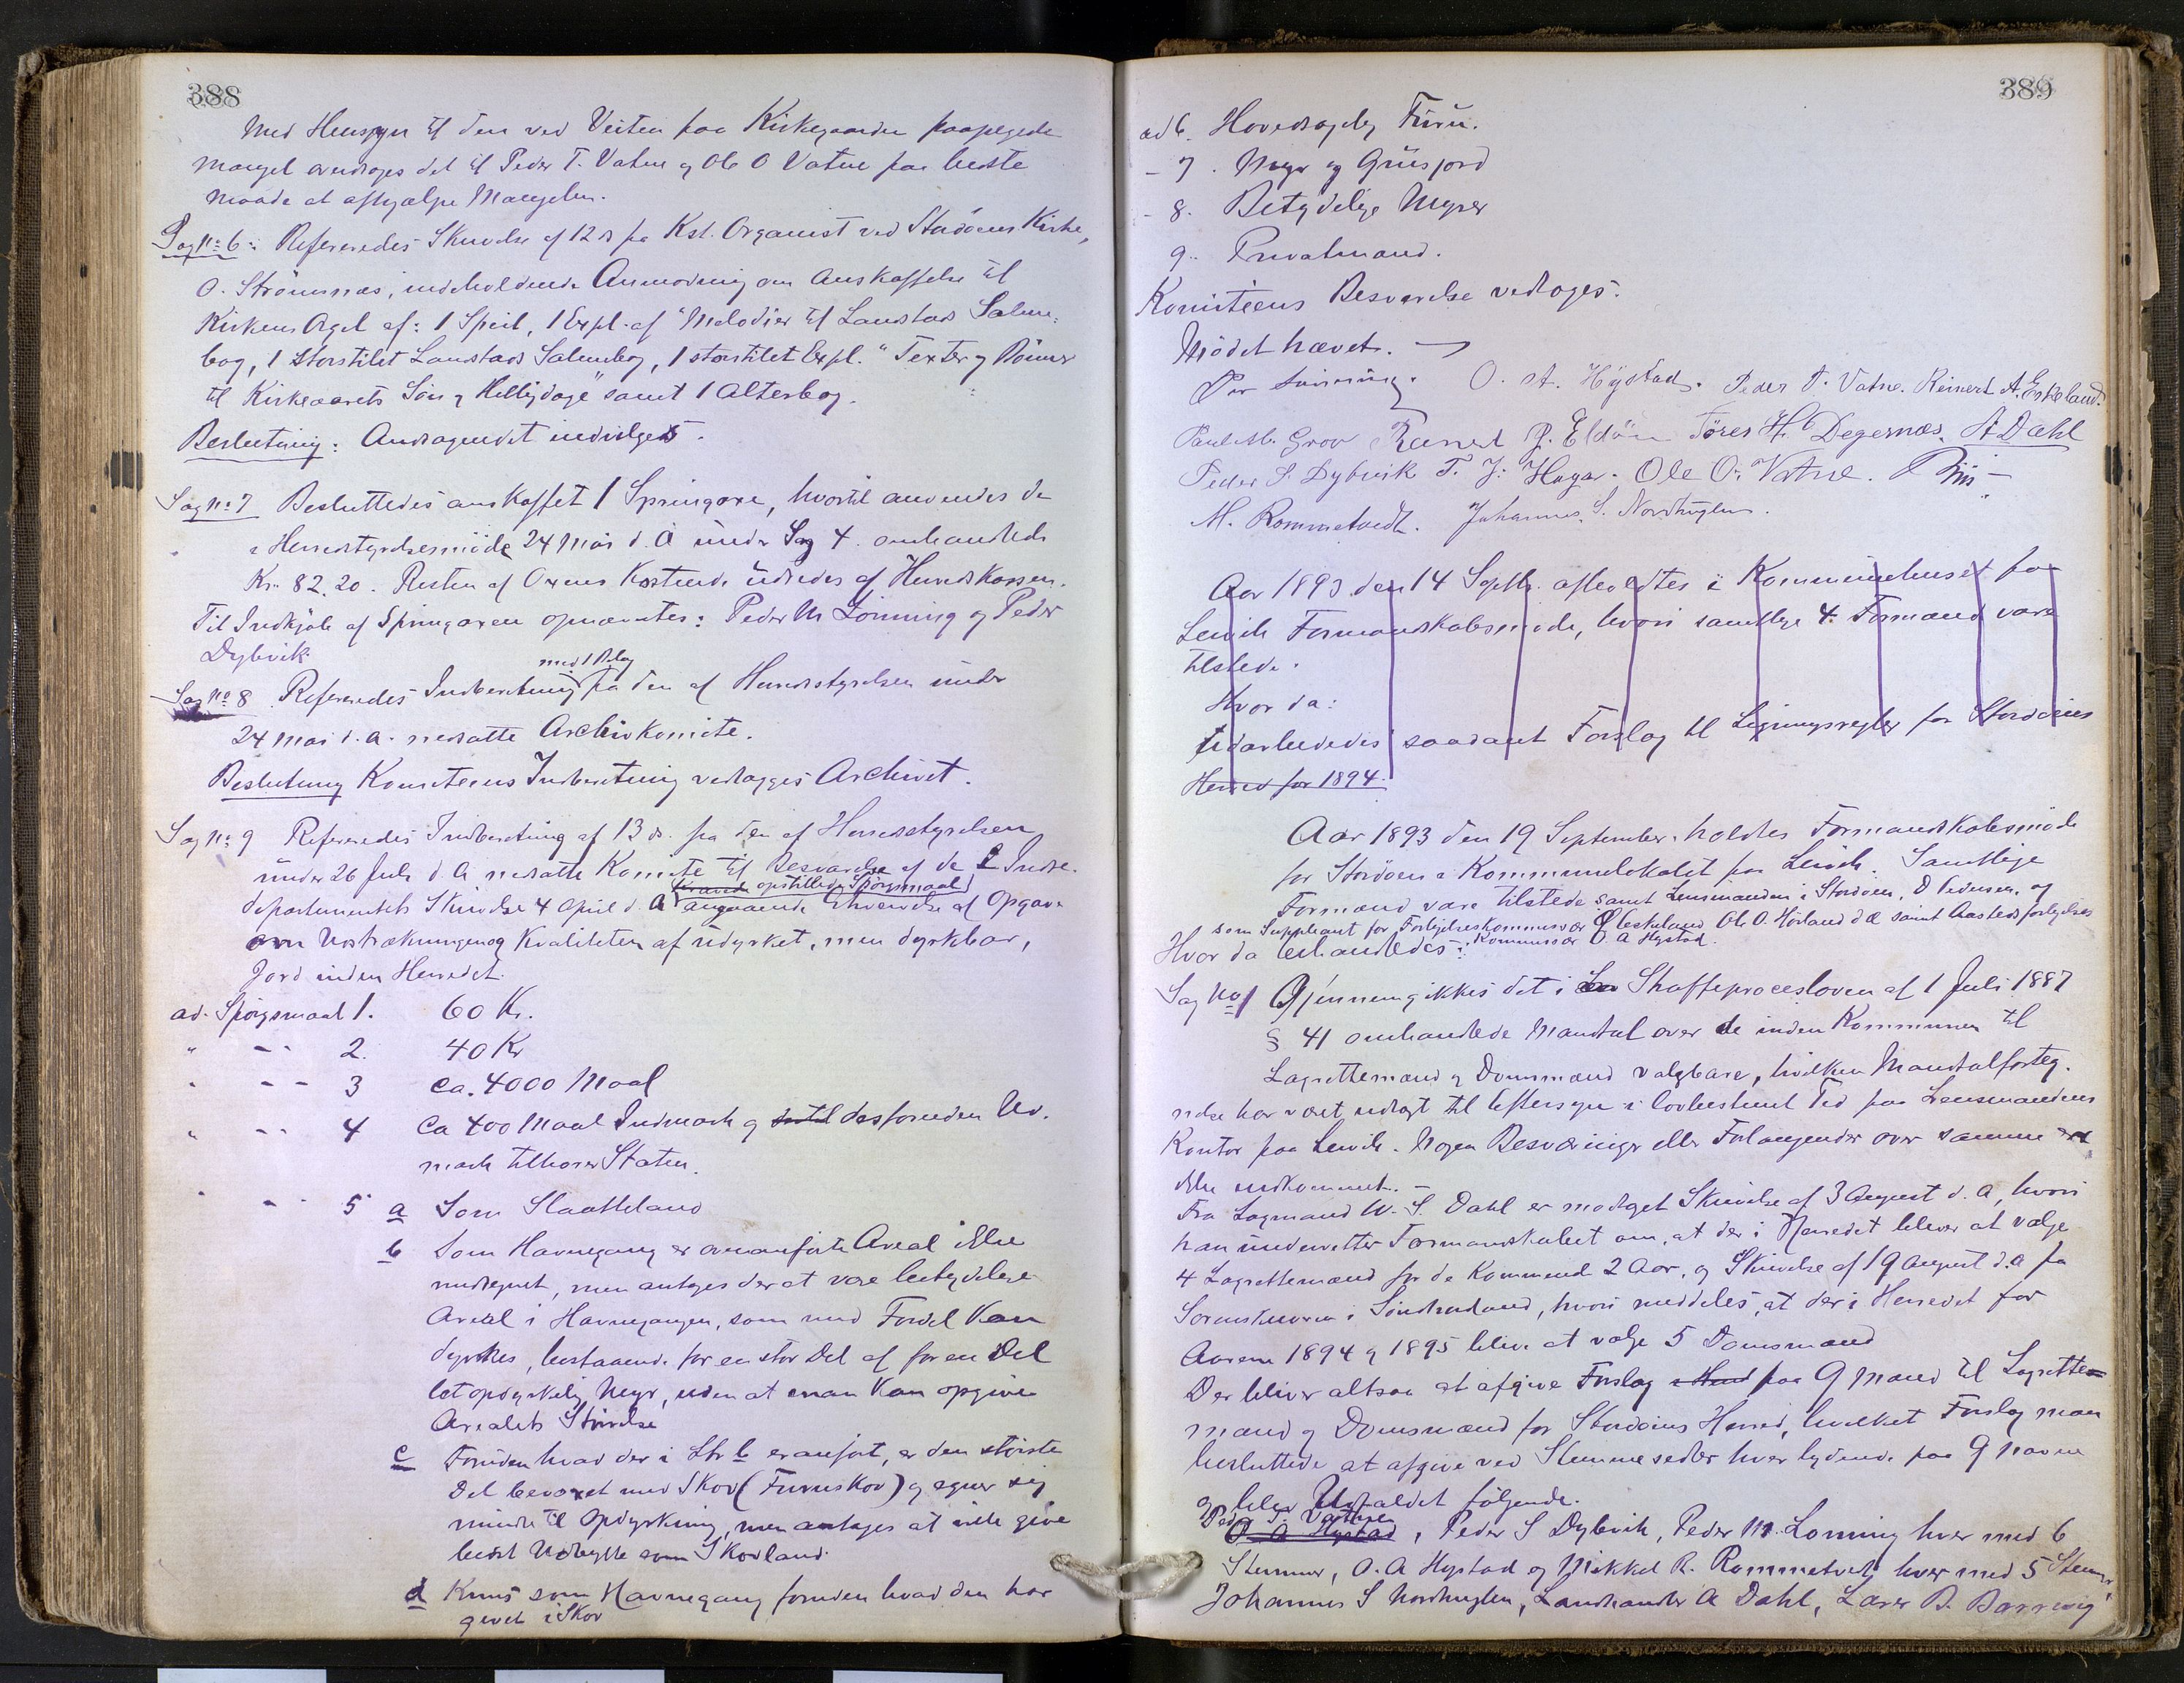 388
Med Hensyn til den ved Veiten paa Kirkegaarden paapegede
mangel overdroges det til Peder T. Vatne og Ole O Vatne paa bedste
maade at afhjælpe Mangelen.
Sag No 6: Refereredes Skrivelse af 12 ds fra Kst. Organist ved Stordöens Kirke,
O. Strömsnæs, indeholdende Anmodning om Anskaffelse til
Kirkens Orgel af: 1 Speil, 1 Expl. af "Melodier til Landstads Salme-
bog, 1 storstilet Landstads Salmebog, 1 storstilet Expl. "Texter og Bönner
til Kirkeaarets Sön og Helligdage" samt 1 Alterbog.
Beslutning: Andragendet indvilges.
Sag No 7 Besluttedes anskaffet 1 Springoxe, hvortil anvendes de
i Herredstyrelsesmöde 24 Mai d. A under Sag 4. omhandlede
Kr. 82,20. Resten af Oxens Kostende udredes af Herredskassen.
Til Indkjöb af Springoxen opnævntes: Peder M Lönning og Peder
Dybvik
med 1 Bilag
Sag No 8 Refereredes Indberetning fra den af Herredsstyrelsen under
24 Mai d. a. nedsatte Archivkomite.
Beslutning Komiteens Indberetning vedlægges Archivet.
Sag No 9 Refereredes Indberetning af 13 ds. fra den af Herredsstyrelsen
under 26 Juli d. A nedsatte Komite til Besvarelse af de i Indre-
opstillede Spörgsmaal
departementets Skrivelse 4 April d. A angaaende Erhvervelse af Opgave
om Udstrækningen og Kvaliteten af udyrket, men dyrkbar,
Jord inden Herredet.
ad. Spörgsmaal 1. 60 Kr.
" - - 2. 40 Kr
" - - 3 ca. 4000 Maal
" - - 4 Ca 400 Maal Indmark og desforuden Ud-
mark tilhörer Staten.
" - 5 a Som Slaatteland
b Som Havnegang er ovenanförte Areal ikke
medregnet, men antages der at være betydelige
Areal i Havnegangen, som med Fordel Kan
dyrkes, bestaaende for en stor Del af for en Del
let opdyrkelig Myr, uden at man Kan opgive
Arealets Störrelse
c Foruden hvad der i Litr b er anfört, er den störste
Del bevoxet med Skov (Furuskov) og egner sig
mindre til Opdyrkning, men antages at ville give
bedst Udbytte som Skovland.
d Kuns som Havnegang foruden hvad den har
givet i Skov
389
ad 6. Hovedsagelig Furu.
- 7. Myr og Grusjord
- 8. Betydelige Myrer
9. Privatmand.
Komiteens Besvarelse vedtoges.
Mödet hævet. -
O. A. Hÿstad. Peder T. Vatne. Reinert A. Eskeland.
Paul M. Grov P. Eldöen Töres H. Degernæs. A Dahl
Peder S. Dybvik T. J. Hagar. Ole O. Vatne.
M. Rommetvedt. Johannes S. Nordhuglen.
Aar 1893 den 14 Septb. afholdtes i Kommunehuset paa
Lervik Formandskabsmöde, hvori samtlige 4 Formænd vare
tilstede.
Hvor da:
Udarbeidedes saadant Forslag til Ligningsregler for Stordöens
Herred for 1894.
Aar 1893 den 19 September holdtes Formandskabsmöde
for Stordöen i Kommunelokalet paa Lervik. Samtlige
Formænd vare tilstede samt Lensmanden i Stordöen, O Pedersen, og
som Suppleant for Forligelseskommissær Eskeland Ole O. Hörland d.æ samt Aastedsforligelses
Kommissær O. A Hystad.
Hvor da behandledes:
Sag No 1 Gjennemgikkes det i Straffeproceslovens af 1 Juli 1887
§ 41 omhandlede Mandtal over de inden Kommunen til
Lagrettemænd og Domsmænd valgbare, hvilken Mandtalsforteg-
nelse har været udlagt til Eftersyn i lovbestemt Tid paa Lensmandens
Kontor paa Lervik. Nogen Besværinger eller Forlangender over samme er
ikke indkommet. -
Fra Lagmand W. S. Dahl er modtaget Skrivelse af 3 August d. A, hvori
han underretter Formandskabet om, at der i Herredet bliver at vælge
4 Lagrettemænd for de Kommende 2 Aar, og Skrivelse af 19 August d.a fra
Sorenskriveren i Söndhordland, hvori meddeles, at der i Herredet for
Aarene 1894 og 1895 bliver at vælge 5 Domsmænd
Der bliver altsaa at afgive Forslag paa 9 Mænd til Lagrette-
mænd og Domsmænd for Stordöens Herred, hvilket Forslag man
besluttede at afgive ved Stemmesedler hver lydende paa 9 Navne
og blev Udfaldet fölgende.
Peder T. Vathne
O A Hystad, Peder S Dybvik, Peder M. Lonning hver med 6
Stemmer, O. A Hystad og Mikkel R. Rommetvedt hver med 5 Stemmer
Johannes S Nordhuglen, Landhandler A Dahl, Lærer B. Barsvig